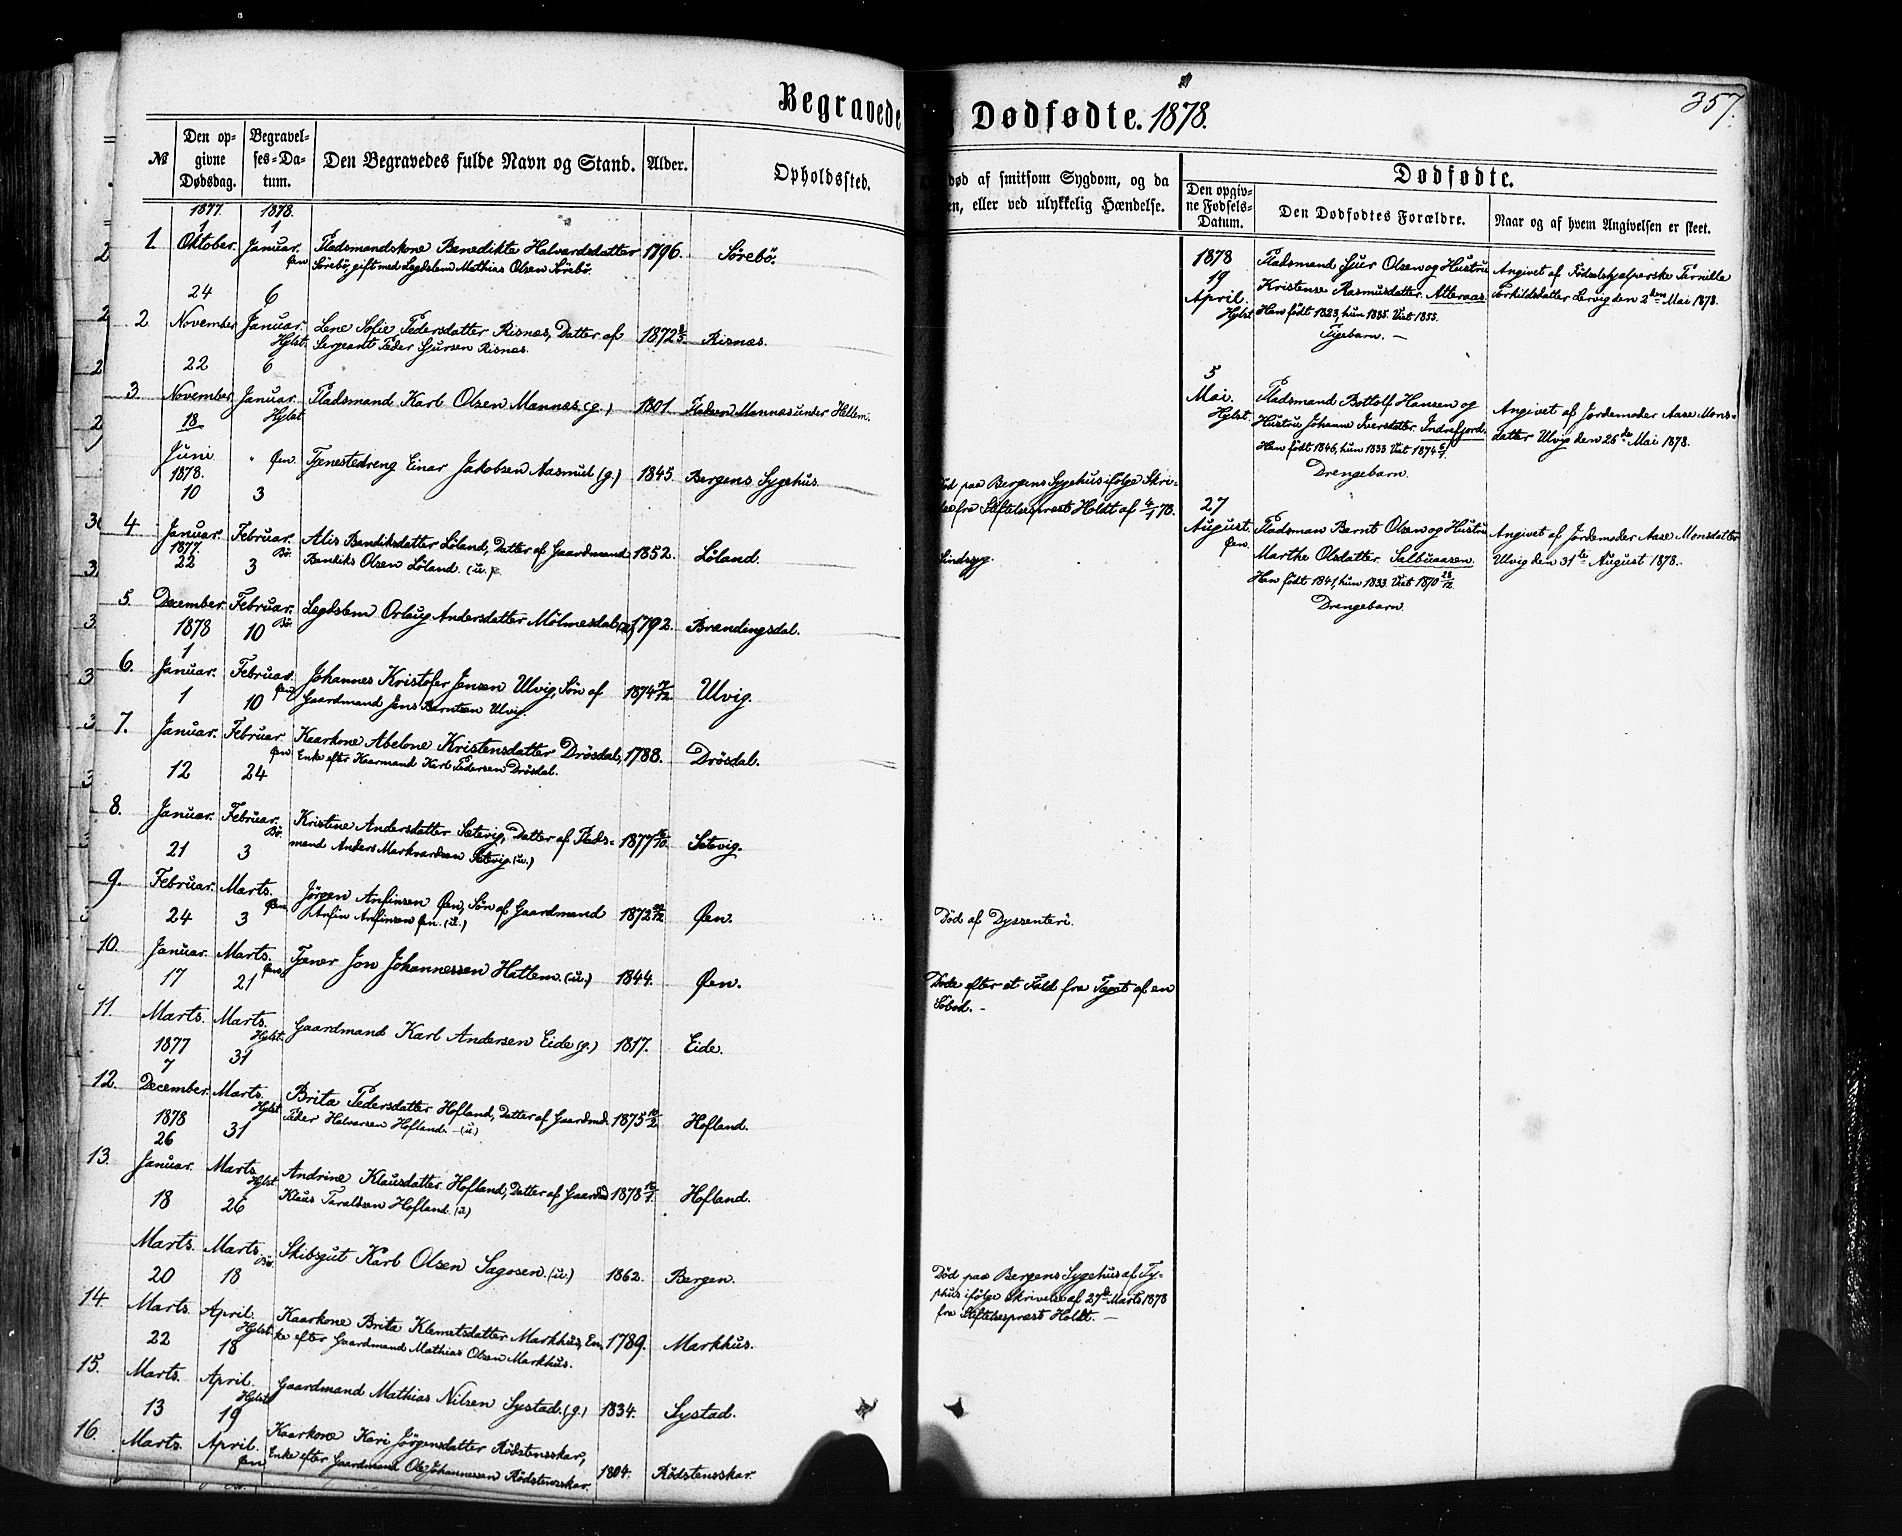 357.
Begravede
Dødfødte. 1878.
№
Den op-
givne
Dødsdag.
Begravel-
ses-Da-
tum.
Den Begravedes fulde Navn og Stand.
Alder.
Opholdssted.
død af smitsom Sygdom, og da
en, eller ved ulykkelig Hændelse.
Dødfødte.
Den opgiv-
ne Fødsels-
Datum.
Den Dødfødtes Forældre.
Naar og af hvem Angivelsen er skeet.
1877. 1878.
1 1
1 Oktober. Januar. Pladsmandskone Benedikte Halvardsdatter 1796. Sørebø.
Øen Sørebø, gift med Legdslem Mathias Olsen Sørebø.
24 6
2 November Januar. Lene Sofie Pedersdatter Risnæs, Datter af 1872 Risnæs.
Hylst. Sergeant Peder Sjursen Risnæs.
22 6
3. November Januar. Pladsmand Karl Olsen Mannæs (g.) 1801. Pladsen Mannæs under Hellem.
18 Hylst.
Juni " Øen. Tjenestedreng Einar Jakobsen Aasmul (g.) 1845. Bergens Sygehus.
1878.
10 3
4 Januar. Februar. Alis Bendiksdatter Løland, Datter af Gaardmand 1852. Løland.
1877. Bø. Bendiks Olsen Løland. (u.)
22 3
5. December. Februar. Legdslem Orlaug Andersdatter Mølmesdal (u) 1792. Brændingsdal.
1878 10 Bø.
1
6. Januar. Februar. Johannes Kristofer Jensen Ulvig, Søn af 1874 Ulvig.
1 10 Øen Gaardmand Jens Berntsen Ulvig.
7. Januar. Februar. Kaarkone Abelone Kristensdatter Drøsdal, 1788. Drøsdal.
Øen Enke efter Kaarmand Karl Pedersen Drøsdal.
12 24
8. Januar. Februar. Kristine Andersdatter Sætevig, Datter af Plads- 1877 Sætevig.
Bø. mand Anders Markvardsen Sætevig. (u.)
21 3
9. Februar. Marts. Jørgen Anfinsen Øen, Søn af Gaardmand 1872 Øen.
24 3 Øen Anfin Anfinsen Øen. (u.)
10. Januar. Marts. Tjener Jon Johannessen Hatlem. (u.) 1844. Øen.
17 21 Øen
11. Marts. Marts. Gaardmand Karl Andersen Eide (g.) 1817. Eide.
1877 31 Hylst.
7
12. December. Marts. Brita Pedersdatter Hofland, Datter af Gaardmd. 1875 Hofland.
1878 Hylst. Peder Halvarsen Hofland. (u)
26 31
13. Januar. Marts. Andrine Klausdatter Hofland, Datter af Gaardmd 1878 Hofland.
Hylst. Klaus Taraldsen Hofland. (u)
18 26
Marts. Marts. Skibsgut Karl Olsen Sagosen. (u.) 1862. Bergen.
20 18 Bø.
14. Marts. April. Kaarkone Brita Klemetsdatter Markhus, En- 1789. Markhus.
Hylst. ke efter Gaardmand Mathias Olsen Markhus.
22 18
15. Marts. April. Gaardmand Mathias Nilsen Systad. (g.) 1834. Systad.
13 19 Hylst.
16. Marts. April. Kaarkone Kari Jørgensdatter Rødstensskar, 1804. Rødstensskar.
Øen Enke efter Gaardmand Ole Johannessen Rødstensskar.
Død paa Bergens Sygehus ifølge Skri-
fra Stiftelsespræst Holdt af 78.
Sindssyg.
Død af Dyssenteri.
Døde efter et Fald fra Taget af en
Søbod. -
Død paa Bergens Sygehus af Ty-
phus ifølge Skrivelse af 27de Marts 1878
fra Stiftelsespræst Holdt. -
1878 Pladsmand Sjur Olsen og Hustru Angivet af Fødselshjælperske Pernille
19 Kristense Rasmusdatter Alteraas. Torkildsdatter Lervig den 2den Mai 1878.
April. Han født 1823, hun 1835. Viet 1855.
Hylst Pigebarn. -
5
Mai. Pladsmand Bottolf Hansen og Angivet af Jordemoder Aase Mons-
Hylst. Hustru Johanne Iversdatter Indrefjord. datter Ulvig den 26de Mai 1878.
Han født 1846, hun 1833 Viet 1874
Drengebarn.
27
August. Pladsman Bernt Olsen og Hustru Angivet af Jordemoder Aase Monsdatter
Øen. Marthe Olsdatter Salbuaasen. Ulvig den 31te August 1878.
Han født 1841, hun 1833 Viet 1870 28/12.
Drengebarn.